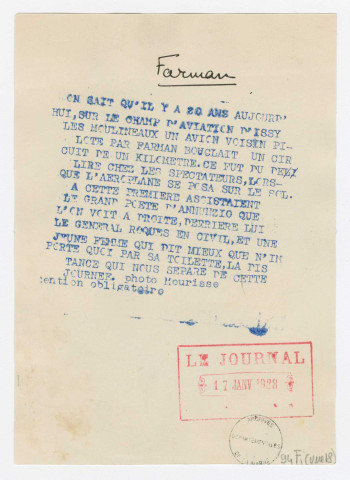 Farman
ON SAIT QU'IL Y A 20 ANS AUJOURD'
HUI, SUR LE CHAMP D'AVIATION D'ISSY
LES MOULINEAUX UN AVION VOISIN PI-
LOTE PAR FARMAN BOUCLAIT UN CIR
CUIT DE UN KILOMETRE. CE FUT DU
LIRE CHEZ LES SPECTATEURS, LORS-
QUE L'AEROPLANE SE POSA SUR LE SOL.
A CETTE PREMIERE ASSISTAIENT
LE GRAND POETE D'ANNUNZIO QUE
L'ON VOIT A DROITE, DERRIERE LUI
LE GENERAL ROQUES EN CIVIL, ET UNE
JEUNE FEMME QUI DIT MIEUX QUE N'IM
PORTE QUOI PAR SA TOILETTE, LA DIS
TANCE QUI NOUS SEPARE DE CETTE
JOURNEE. photo Mourisse
mention obligatoire
LE JOURNAL
JANV 1928
ARCHIVES